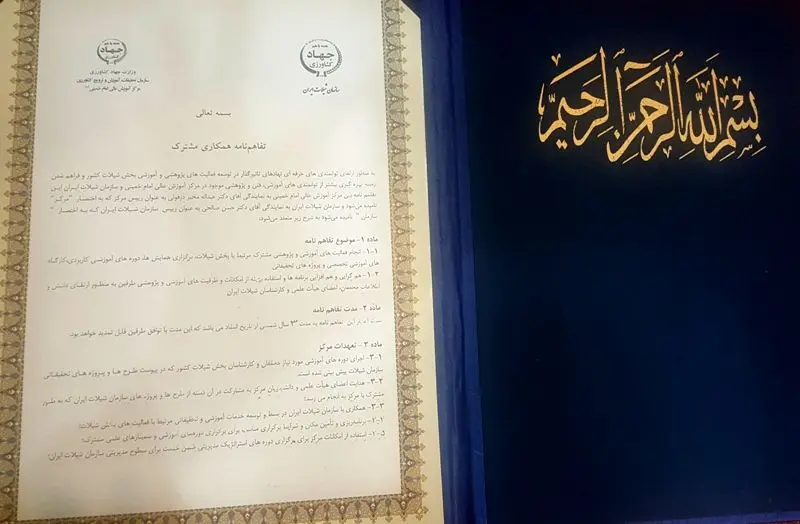 جهاد
کشاورزی
سازمان شیلات ایران
جهاد
کشاورزی
وزارت جهاد کشاورزی
سازمان تحقیقات، آموزش و ترویج کشاورزی
مرکز آموزش عالی امام خمینی (ره)
بسمه تعالی
تفاهم‌نامه همکاری مشترک
به منظور ارتقای توانمندی های حرفه ای نهادهای تاثیرگذار در توسعه فعالیت های پژوهشی و آموزشی بخش شیلات کشور و فراهم شدن
زمینه بهره گیری بیشتر از توانمندی های آموزشی، فنی و پژوهشی موجود در مرکز آموزش عالی امام خمینی و سازمان شیلات ایران این
تفاهم نامه بین مرکز آموزش عالی امام خمینی به نمایندگی آقای دکتر عبداله مخبر دزفولی به عنوان رییس مرکز که به اختصار "مرکز"
نامیده می‌شود و سازمان شیلات ایران به نمایندگی آقای دکتر حسن صالحی به عنوان رییس سازمان شیلات ایران که به اختصار "
سازمان " نامیده می‌شود به شرح زیر منعقد می‌شود:
ماده ۱- موضوع تفاهم نامه
۱-۱- انجام فعالیت های آموزشی و پژوهشی مشترک مرتبط با بخش شیلات، برگزاری همایش ها، دوره های آموزشی کاربردی، کارگاه
های آموزشی تخصصی و پروژه های تحقیقاتی
۱-۲- هم گرایی و هم افزایی برنامه ها و استفاده بهینه از امکانات و ظرفیت های آموزشی و پژوهشی طرفین به منظور ارتقای دانش و
اطلاعات محققان، اعضای هیأت علمی و کارشناسان شیلات ایران
ماده ۲- مدت تفاهم نامه
این تفاهم نامه به مدت ۳ سال شمسی از تاریخ امضاء می باشد که این مدت با توافق طرفین قابل تمدید خواهد بود.
ماده ۳- تعهدات مرکز
۳-۱- اجرای دوره های آموزشی مورد نیاز محققان و کارشناسان بخش شیلات کشور که در پیوست طرح ها و پروژه های تحقیقاتی
سازمان شیلات پیش بینی شده است.
۳-۲- هدایت اعضای هیأت علمی و دانشجویان مرکز به مشارکت در آن دسته از طرح ها و پروژه های سازمان شیلات ایران که به طور
مشترک با مرکز به انجام می رسد؛
۳-۳- همکاری با سازمان شیلات ایران در بسط و توسعه خدمات آموزشی و تحقیقاتی مرتبط با فعالیت های بخش شیلات؛
برنامه‌ریزی و تأمین مکان و شرایط برگزاری مناسب برای برگزاری دوره‌های آموزشی و سمینارهای علمی مشترک؛
استفاده از امکانات مرکز برای برگزاری دوره های استراتژیک مدیریتی ضمن خدمت برای سطوح مدیریتی سازمان شیلات ایران؛
بسم الله الرحمن الرحیم